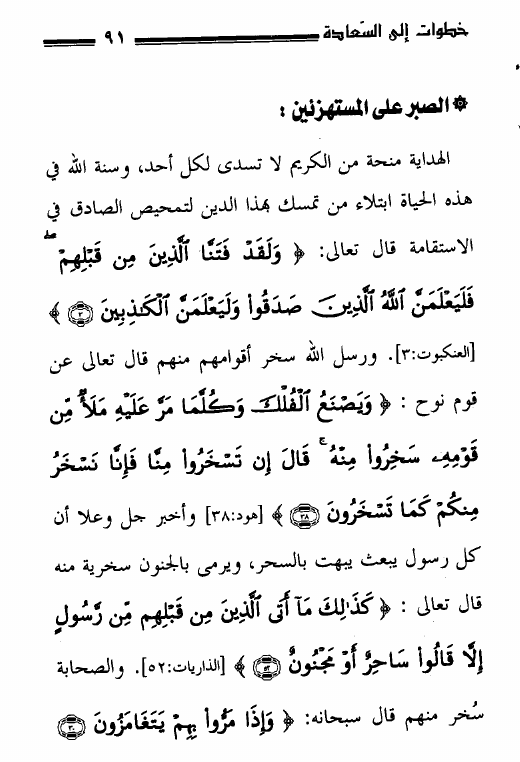 خطوات إلى السّعادة ٩١
۞ الصبر على المستهزئين :
الهداية منحة من الكريم لا تسدى لكل أحد، وسنة الله في
هذه الحياة ابتلاء من تمسك بهذا الدين لتمحيص الصادق في
الاستقامة قال تعالى: ﴿ وَلَقَدْ فَتَنَّا ٱلَّذِينَ مِن قَبْلِهِمْ ۖ
فَلَيَعْلَمَنَّ ٱللَّهُ ٱلَّذِينَ صَدَقُوا۟ وَلَيَعْلَمَنَّ ٱلْكَـٰذِبِينَ ٣ ﴾
[العنكبوت:٣]. ورسل الله سخر أقوامهم منهم قال تعالى عن
قوم نوح : ﴿ وَيَصْنَعُ ٱلْفُلْكَ وَكُلَّمَا مَرَّ عَلَيْهِ مَلَأٌ مِّن
قَوْمِهِۦ سَخِرُوا۟ مِنْهُ ۚ قَالَ إِن تَسْخَرُوا۟ مِنَّا فَإِنَّا نَسْخَرُ
مِنكُمْ كَمَا تَسْخَرُونَ ٣٨ ﴾ [هود:٣٨] وأخبر جل وعلا أن
كل رسول يبعث يبهت بالسحر، ويرمى بالجنون سخرية منه
قال تعالى : ﴿ كَذَٰلِكَ مَآ أَتَى ٱلَّذِينَ مِن قَبْلِهِم مِّن رَّسُولٍ
إِلَّا قَالُوا۟ سَاحِرٌ أَوْ مَجْنُونٌ ٥٢ ﴾ [الذاريات:٥٢]. والصحابة
سُخر منهم قال سبحانه: ﴿ وَإِذَا مَرُّوا۟ بِهِمْ يَتَغَامَزُونَ ٣٠